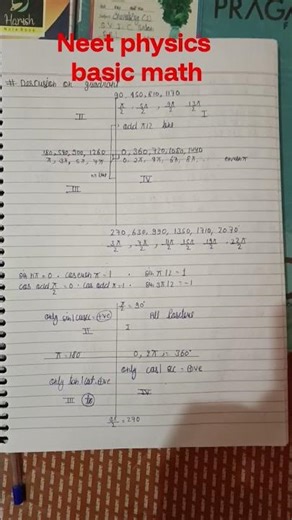 Harish
PRAG
Neet physics
basic math
# Discussion on quadrant
90, 450, 810, 1170
π/2, 5π/2, 9π/2, 13π/2
II I
odd π/2
180, 540, 900, 1260 0, 360, 720, 1080, 1440
π, 3π, 5π, 7π 0, 2π, 4π, 6π, 8π
III IV
270, 630, 990, 1350, 1710, 2070
3π/2, 7π/2, 11π/2, 15π/2, 19π/2, 23π/2
sin nπ = 0 · cos even π = 1 · sin π/2 = 1
cos odd π/2 = 0 · cos odd π = -1 · sin 3π/2 = -1
π/2 = 90°
only sin/cosec = +ive All
II I
π = 180 0, 2π = 360°
only tan/cot +ive only cos/sec = +ive
III IV
3π/2 = 270